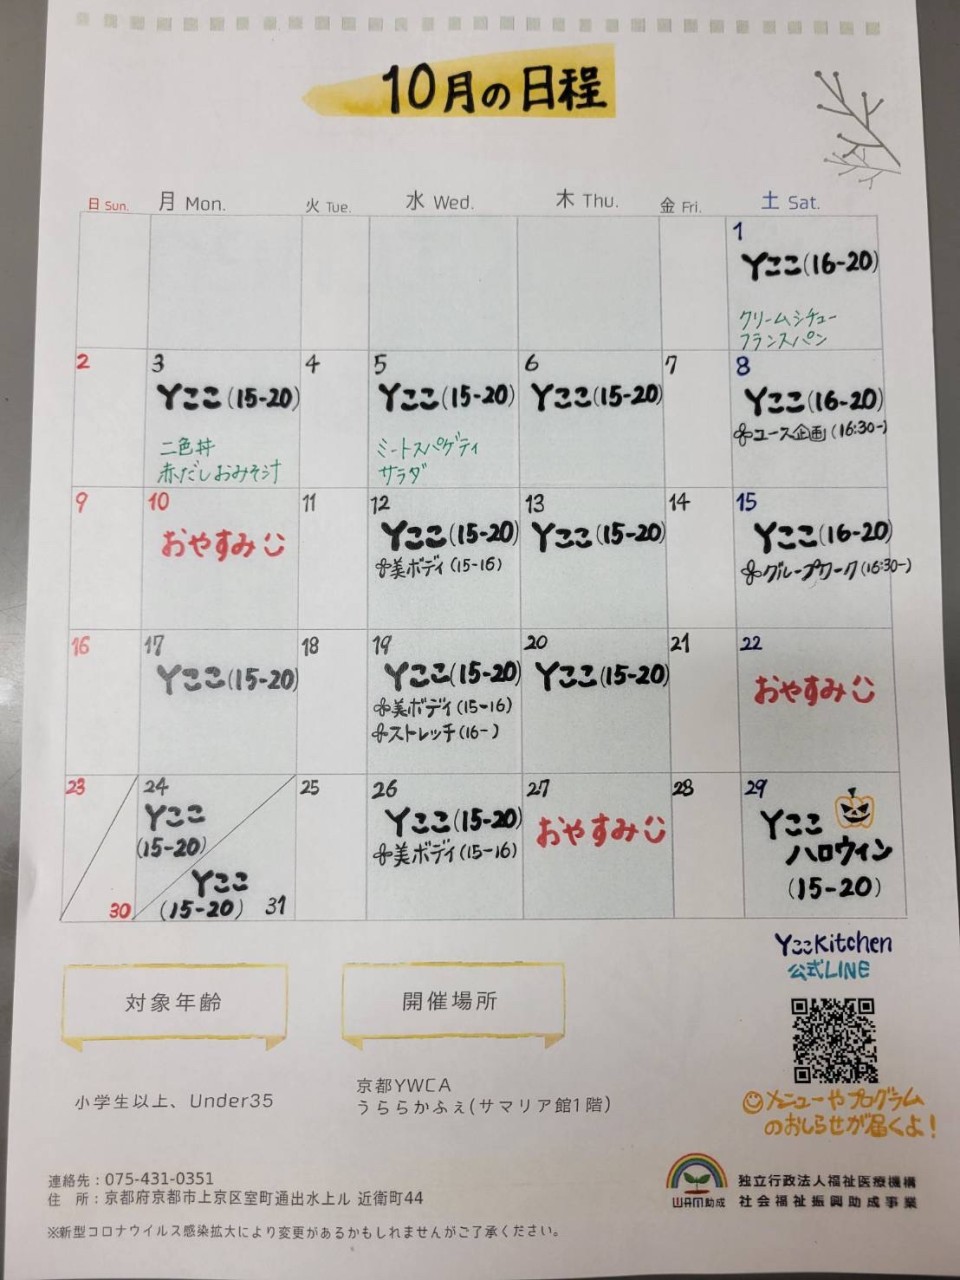 10月の日程
日 Sun. 月 Mon. 火 Tue. 水 Wed. 木 Thu. 金 Fri. 土 Sat.
1
Yここ(16-20)
クリームシチュー
フランスパン
2
3
Yここ(15-20)
二色丼
赤だしおみそ汁
4
5
Yここ(15-20)
ミートスパゲティ
サラダ
6
Yここ(15-20)
7
8
Yここ(16-20)
ユース企画(16:30-)
9
10
おやすみ
11
12
Yここ(15-20)
美ボディ(15-16)
13
Yここ(15-20)
14
15
Yここ(16-20)
グループワーク(16:30-)
16
17
Yここ(15-20)
18
19
Yここ(15-20)
美ボディ(15-16)
ストレッチ(16-)
20
Yここ(15-20)
21
22
おやすみ
23
30
24
Yここ
(15-20)
Yここ
(15-20) 31
25
26
Yここ(15-20)
美ボディ(15-16)
27
おやすみ
28
29
Yここ
ハロウィン
(15-20)
YここKitchen
公式LINE
メニューやプログラム
のおしらせが届くよ!
対象年齢
小学生以上、Under35
開催場所
京都YWCA
うららかふぇ(サマリア館1階)
連絡先:075-431-0351
住 所:京都府京都市上京区室町通出水上ル 近衛町44
※新型コロナウイルス感染拡大により変更があるかもしれませんがご了承ください。
WAM助成
独立行政法人福祉医療機構
社会福祉振興助成事業